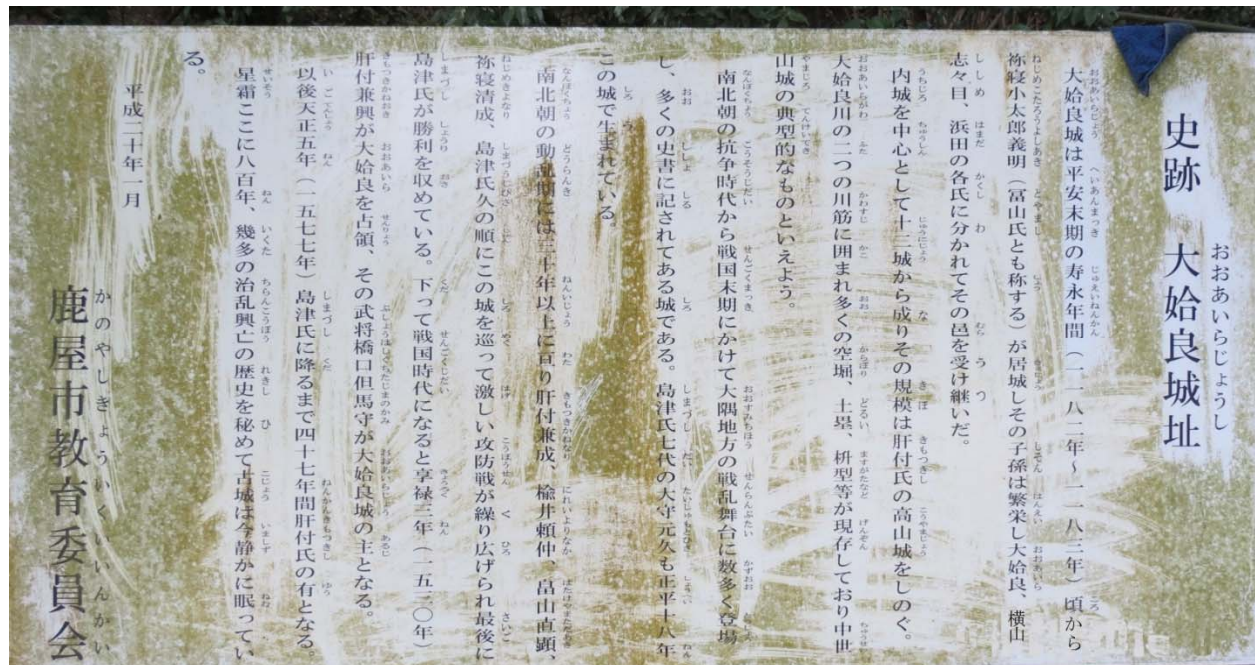 おおあいらじょうし
史跡 大姶良城址
大姶良城は平安末期の寿永年間（一一八二年～一一八三年）頃から
祢寝小太郎義明（冨山氏とも称する）が居城しその子孫は繁栄し大姶良、横山
志々目、浜田の各氏に分かれてその邑を受け継いだ。
内城を中心として十二城から成りその規模は肝付氏の高山城をしのぐ。
大姶良川の二つの川筋に囲まれ多くの空堀、土塁、枡型等が現存しており中世
山城の典型的なものといえよう。
南北朝の抗争時代から戦国末期にかけて大隅地方の戦乱舞台に数多く登場
し、多くの史書に記されてある城である。島津氏七代の大守元久も正平十八年
この城で生まれている。
南北朝の動乱期には三十年以上に亘り肝付兼成、楡井頼仲、畠山直顕、
祢寝清成、島津氏久の順にこの城を巡って激しい攻防戦が繰り広げられ最後に
島津氏が勝利を収めている。下って戦国時代になると享禄三年（一五三〇年）
肝付兼興が大姶良を占領、その武将橋口但馬守が大姶良城の主となる。
以後天正五年（一五七七年）島津氏に降るまで四十七年間肝付氏の有となる。
星霜ここに八百年、幾多の治乱興亡の歴史を秘めて古城は今静かに眠ってい
る。
平成二十年一月
かのやしきょういくいいんかい
鹿屋市教育委員会